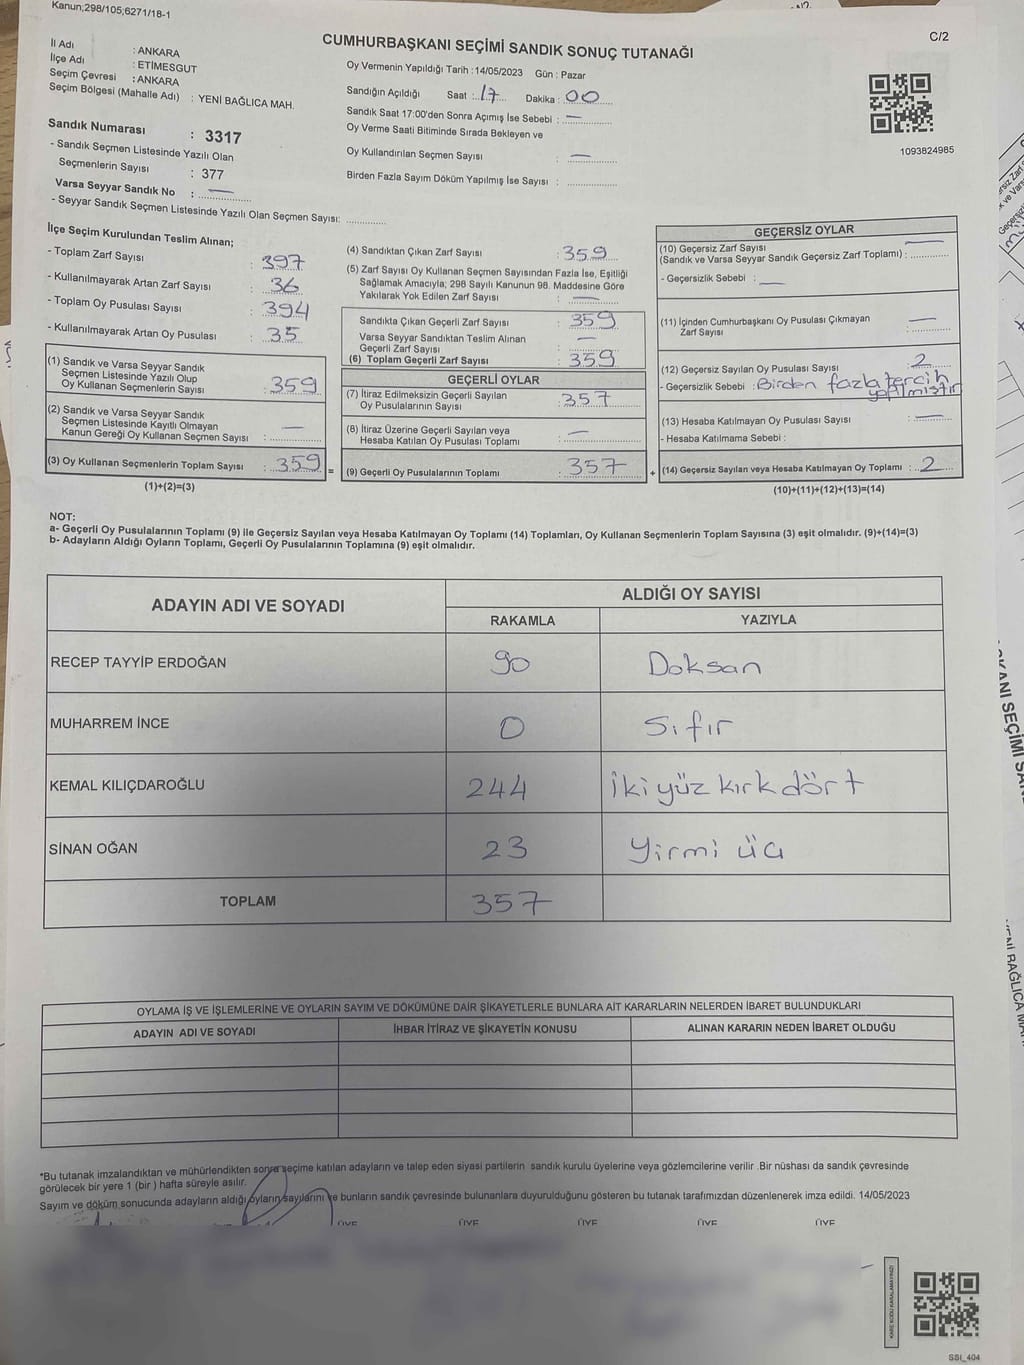 Kanun;298/105;6271/18-1
C/2
CUMHURBAŞKANI SEÇİMİ SANDIK SONUÇ TUTANAĞI
İl Adı : ANKARA
İlçe Adı : ETİMESGUT
Seçim Çevresi : ANKARA
Seçim Bölgesi (Mahalle Adı) : YENİ BAĞLICA MAH.
Sandık Numarası : 3317
- Sandık Seçmen Listesinde Yazılı Olan
Seçmenlerin Sayısı : 377
Varsa Seyyar Sandık No : —
- Seyyar Sandık Seçmen Listesinde Yazılı Olan Seçmen Sayısı:
Oy Vermenin Yapıldığı Tarih : 14/05/2023 Gün : Pazar
Sandığın Açıldığı Saat : 17 Dakika : 00
Sandık Saat 17:00'den Sonra Açımış İse Sebebi : —
Oy Verme Saati Bitiminde Sırada Bekleyen ve
Oy Kullandırılan Seçmen Sayısı : —
Birden Fazla Sayım Döküm Yapılmış İse Sayısı :
1093824985
İlçe Seçim Kurulundan Teslim Alınan;
- Toplam Zarf Sayısı : 397
- Kullanılmayarak Artan Zarf Sayısı : 36
- Toplam Oy Pusulası Sayısı : 394
- Kullanılmayarak Artan Oy Pusulası : 35
(1) Sandık ve Varsa Seyyar Sandık
Seçmen Listesinde Yazılı Olup
Oy Kullanan Seçmenlerin Sayısı : 359
(2) Sandık ve Varsa Seyyar Sandık
Seçmen Listesinde Kayıtlı Olmayan
Kanun Gereği Oy Kullanan Seçmen Sayısı : —
(3) Oy Kullanan Seçmenlerin Toplam Sayısı : 359 =
(1)+(2)=(3)
(4) Sandıktan Çıkan Zarf Sayısı : 359
(5) Zarf Sayısı Oy Kullanan Seçmen Sayısından Fazla İse, Eşitliği
Sağlamak Amacıyla; 298 Sayılı Kanunun 98. Maddesine Göre
Yakılarak Yok Edilen Zarf Sayısı : —
Sandıkta Çıkan Geçerli Zarf Sayısı : 359
Varsa Seyyar Sandıktan Teslim Alınan
Geçerli Zarf Sayısı : —
(6) Toplam Geçerli Zarf Sayısı : 359
GEÇERLİ OYLAR
(7) İtiraz Edilmeksizin Geçerli Sayılan
Oy Pusulalarının Sayısı : 357
(8) İtiraz Üzerine Geçerli Sayılan veya
Hesaba Katılan Oy Pusulası Toplamı : —
(9) Geçerli Oy Pusulalarının Toplamı : 357 +
GEÇERSİZ OYLAR
(10) Geçersiz Zarf Sayısı
(Sandık ve Varsa Seyyar Sandık Geçersiz Zarf Toplamı) : —
- Geçersizlik Sebebi : —
(11) İçinden Cumhurbaşkanı Oy Pusulası Çıkmayan
Zarf Sayısı : —
(12) Geçersiz Sayılan Oy Pusulası Sayısı : 2
- Geçersizlik Sebebi : Birden fazla tercih
yapılmıştır
(13) Hesaba Katılmayan Oy Pusulası Sayısı : —
- Hesaba Katılmama Sebebi :
(14) Geçersiz Sayılan veya Hesaba Katılmayan Oy Toplamı : 2
(10)+(11)+(12)+(13)=(14)
NOT:
a- Geçerli Oy Pusulalarının Toplamı (9) ile Geçersiz Sayılan veya Hesaba Katılmayan Oy Toplamı (14) Toplamları, Oy Kullanan Seçmenlerin Toplam Sayısına (3) eşit olmalıdır. (9)+(14)=(3)
b- Adayların Aldığı Oyların Toplamı, Geçerli Oy Pusulalarının Toplamına (9) eşit olmalıdır.
ADAYIN ADI VE SOYADI ALDIĞI OY SAYISI
RAKAMLA YAZIYLA
RECEP TAYYİP ERDOĞAN 90 Doksan
MUHARREM İNCE 0 Sıfır
KEMAL KILIÇDAROĞLU 244 İki yüz kırk dört
SİNAN OĞAN 23 Yirmi üç
TOPLAM 357
OYLAMA İŞ VE İŞLEMLERİNE VE OYLARIN SAYIM VE DÖKÜMÜNE DAİR ŞİKAYETLERLE BUNLARA AİT KARARLARIN NELERDEN İBARET BULUNDUKLARI
ADAYIN ADI VE SOYADI İHBAR İTİRAZ VE ŞİKAYETİN KONUSU ALINAN KARARIN NEDEN İBARET OLDUĞU
*Bu tutanak imzalandıktan ve mühürlendikten sonra seçime katılan adayların ve talep eden siyasi partilerin sandık kurulu üyelerine veya gözlemcilerine verilir .Bir nüshası da sandık çevresinde
görülecek bir yere 1 (bir ) hafta süreyle asılır.
Sayım ve döküm sonucunda adayların aldığı oyların sayılarını ve bunların sandık çevresinde bulunanlara duyurulduğunu gösteren bu tutanak tarafımızdan düzenlenerek imza edildi. 14/05/2023
ÜYE ÜYE ÜYE ÜYE ÜYE
KARE KODU KARALAMAYINIZ!
SSI_404